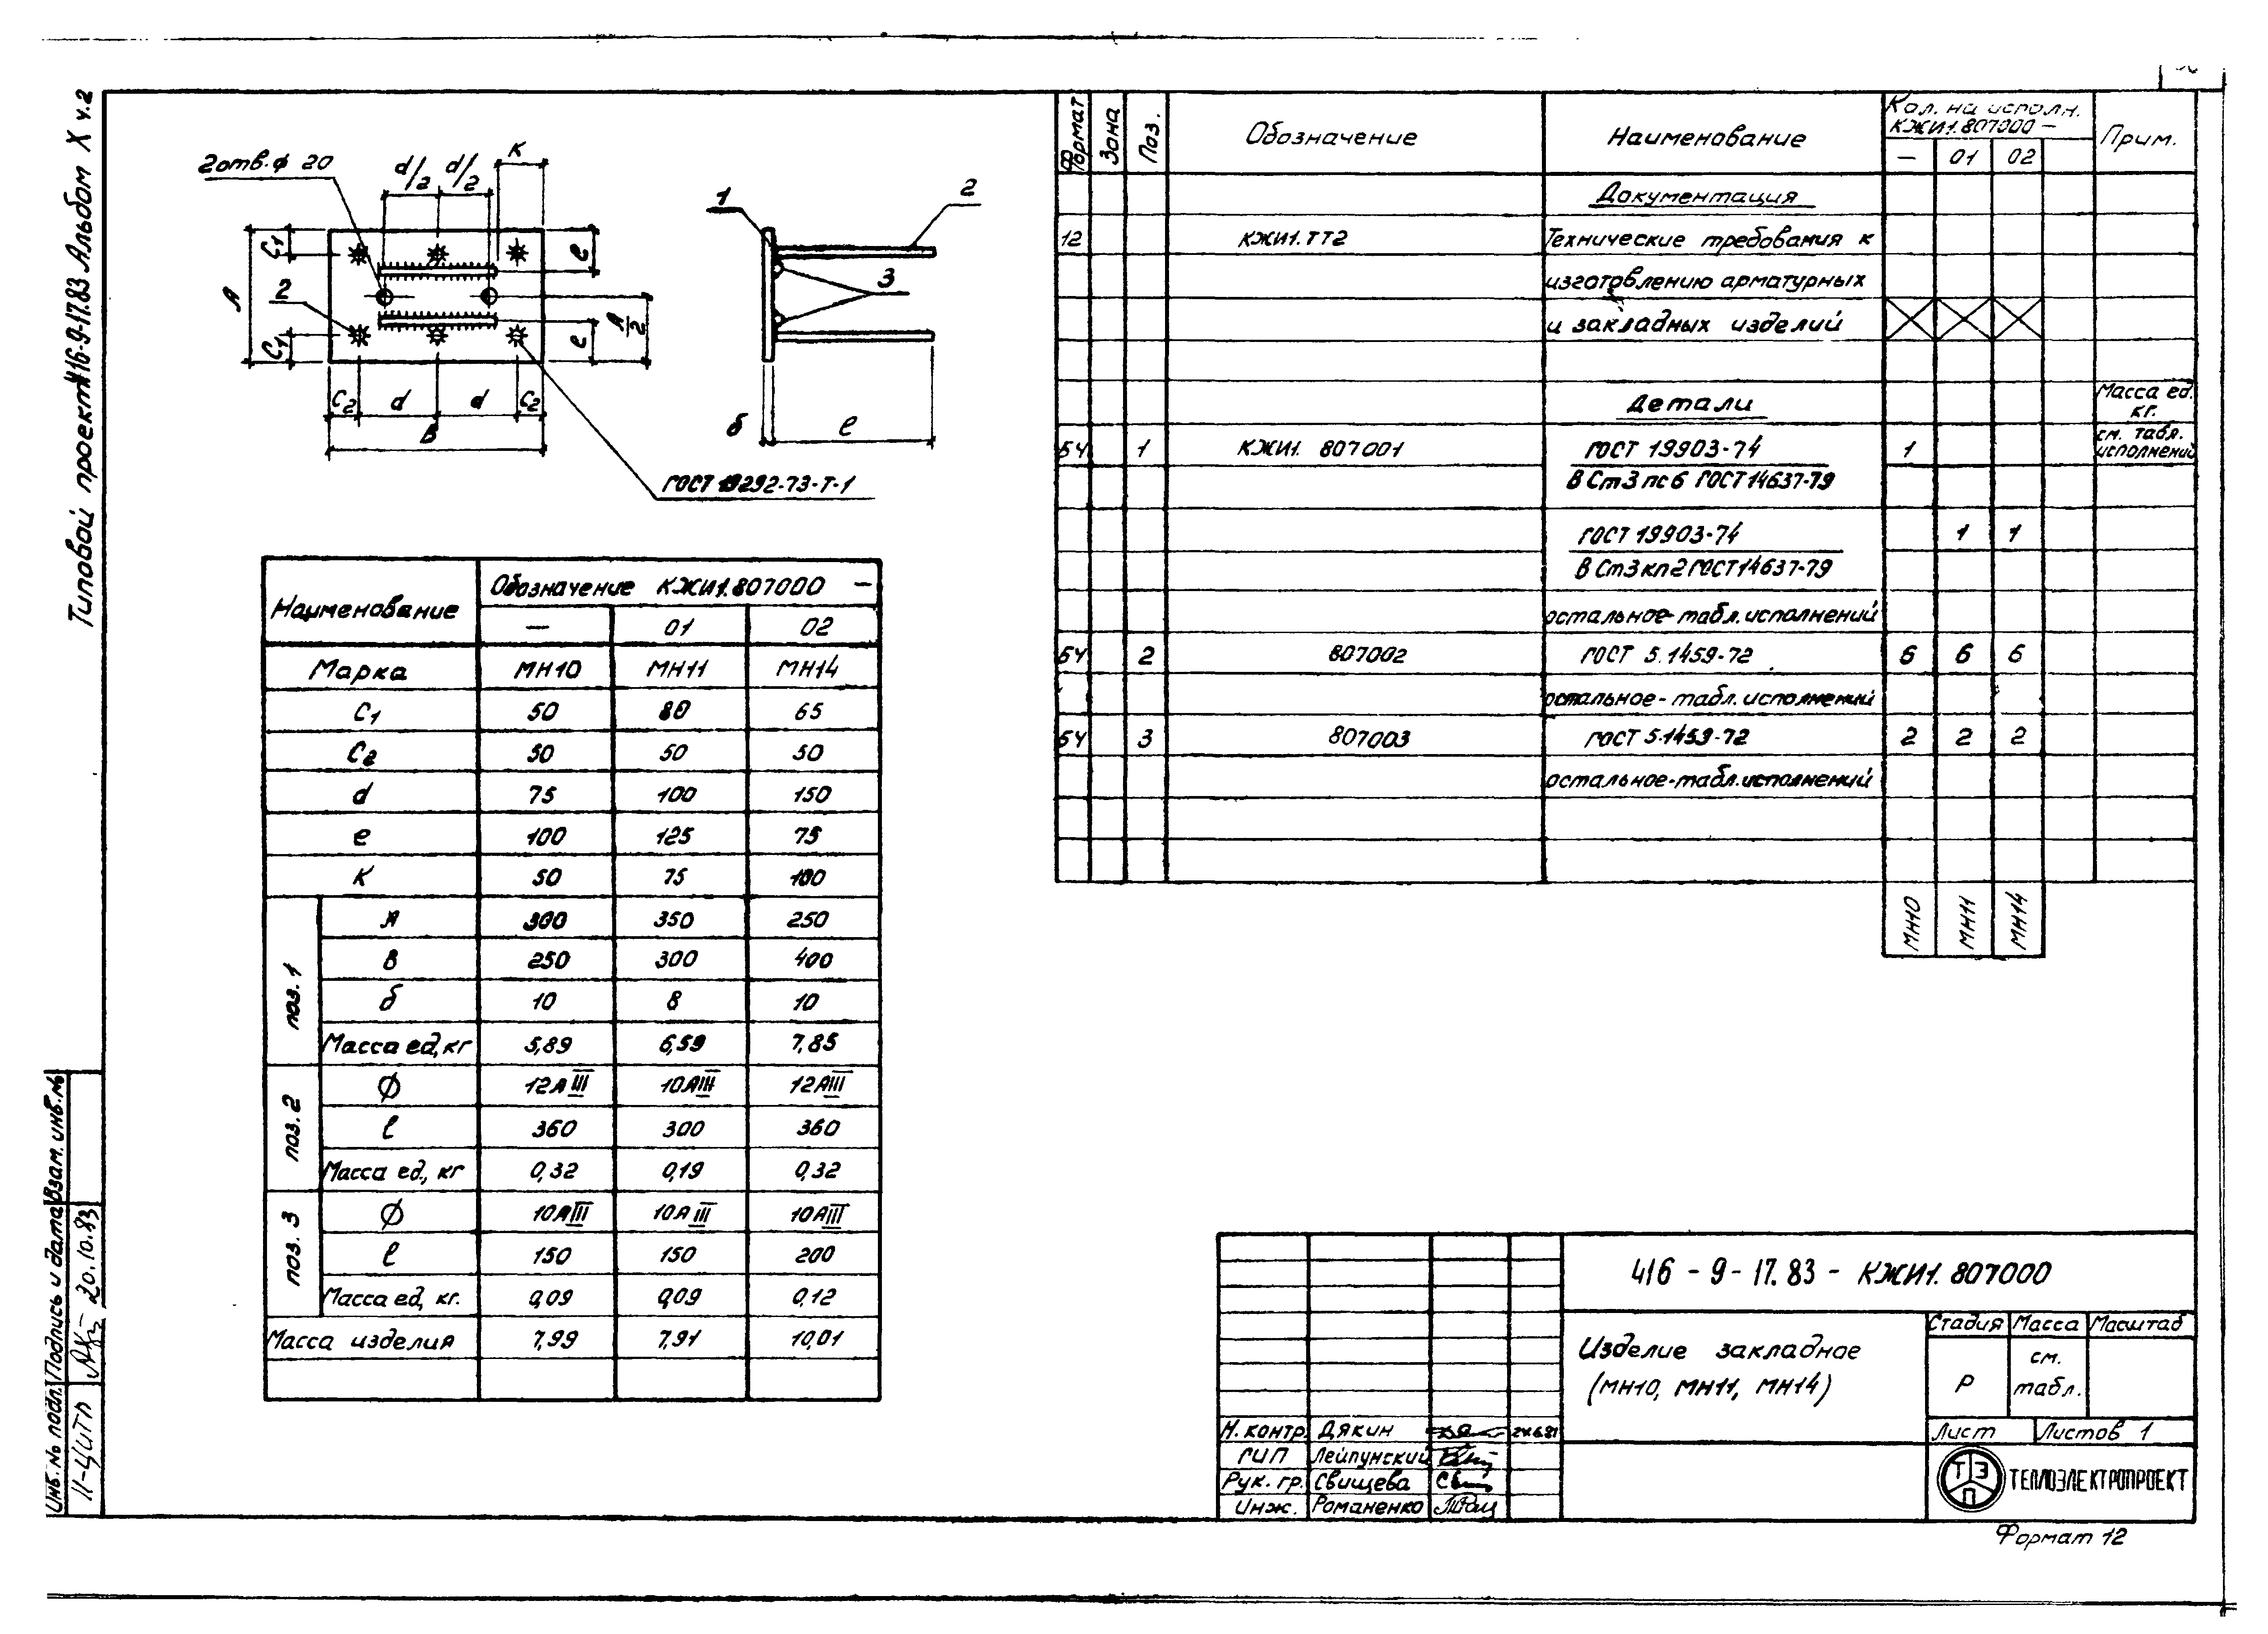 Типовой проект 416-9-17.83 Альбом X ч.2
2 отв. ф 20
d/2 d/2 K
1 2
C1 e
A 2 3
C1 e A/2
C2 d d C2
B
б ℓ
ГОСТ 19292-73-Т-1
Наименование Обозначение КЖИ1.807000 —
— 01 02
Марка МН10 МН11 МН14
C1 50 80 65
C2 50 50 50
d 75 100 150
e 100 125 75
K 50 75 100
поз. 1
A 300 350 250
B 250 300 400
б 10 8 10
Масса ед, кг 5,89 6,59 7,85
поз. 2
Ø 12АIII 10АIII 12АIII
ℓ 360 300 360
Масса ед., кг 0,32 0,19 0,32
поз. 3
Ø 10АIII 10АIII 10АIII
ℓ 150 150 200
Масса ед, кг. 0,09 0,09 0,12
Масса изделия 7,99 7,91 10,01
Формат Зона Поз. Обозначение Наименование Кол. на исполн. КЖИ1.807000 — Прим.
— 01 02
Документация
12 КЖИ1.ТТ2 Технические требования к
изготовлению арматурных
и закладных изделий
Детали Масса ед. кг.
БЧ 1 КЖИ1. 807001 ГОСТ 19903-74 1 см. табл. исполнений
В Ст3пс6 ГОСТ14637-79
ГОСТ 19903-74 1 1
В Ст3кп2 ГОСТ14637-79
остальное-табл. исполнений
БЧ 2 807002 ГОСТ 5.1459-72 6 6 6
остальное-табл. исполнений
БЧ 3 807003 ГОСТ 5.1459-72 2 2 2
остальное-табл. исполнений
МН10 МН11 МН14
416 - 9 - 17.83 - КЖИ1. 807000
Изделие закладное
(МН10, МН11, МН14)
Стадия Масса Масштаб
Р см. табл.
Лист Листов 1
Н. контр. Дякин 24.6.81
ГИП Лейпунский
Рук. гр. Свищева
Инж. Романенко
ТЭП ТЕПЛОЭЛЕКТРОПРОЕКТ
Формат 12
Инв. № подл. Подпись и дата Взам. инв. №
11-ЦИТП 20.10.83